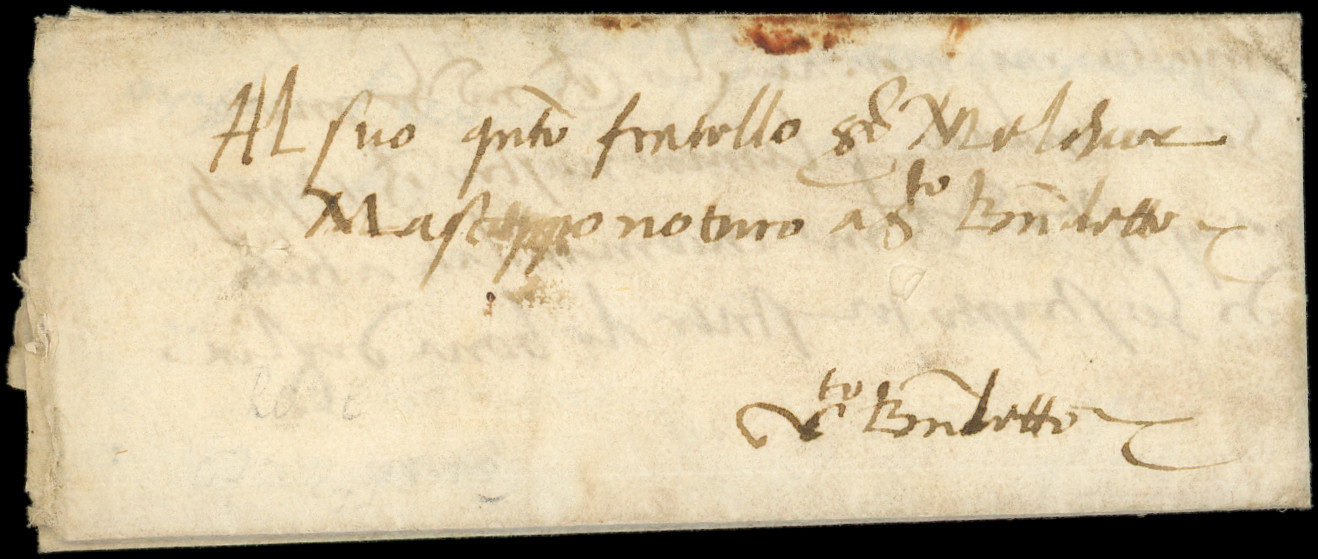 Al suo qnto fratello sr Melchior
notaro a sto Bndetto
sto Bndetto